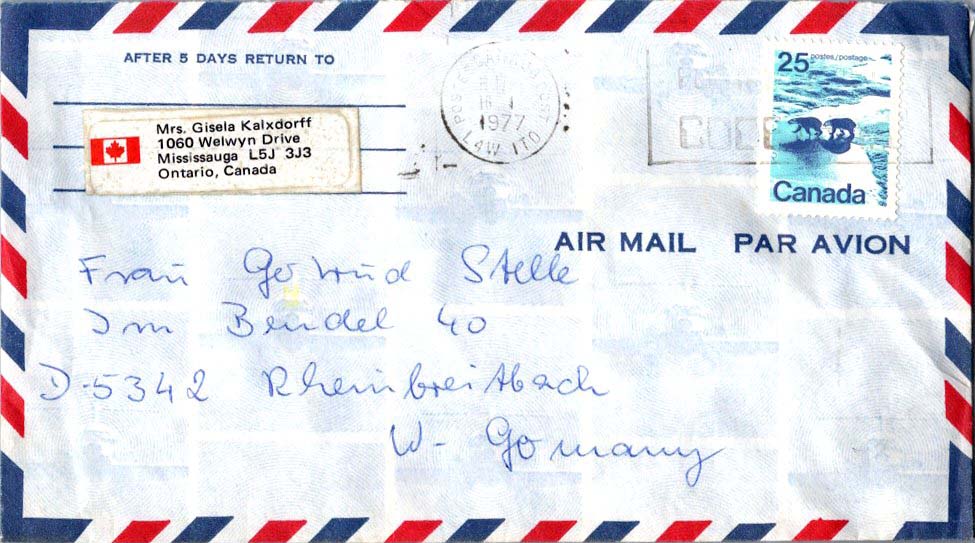 AFTER 5 DAYS RETURN TO
Mrs. Gisela Kalxdorff
1060 Welwyn Drive
Mississauga L5J 3J3
Ontario, Canada
1977
L4W 1T0
25 postes/postage
Canada
AIR MAIL PAR AVION
Frau Gertrud Stelle
Im Bendel 40
D-5342 Rheinbreitbach
W-Germany